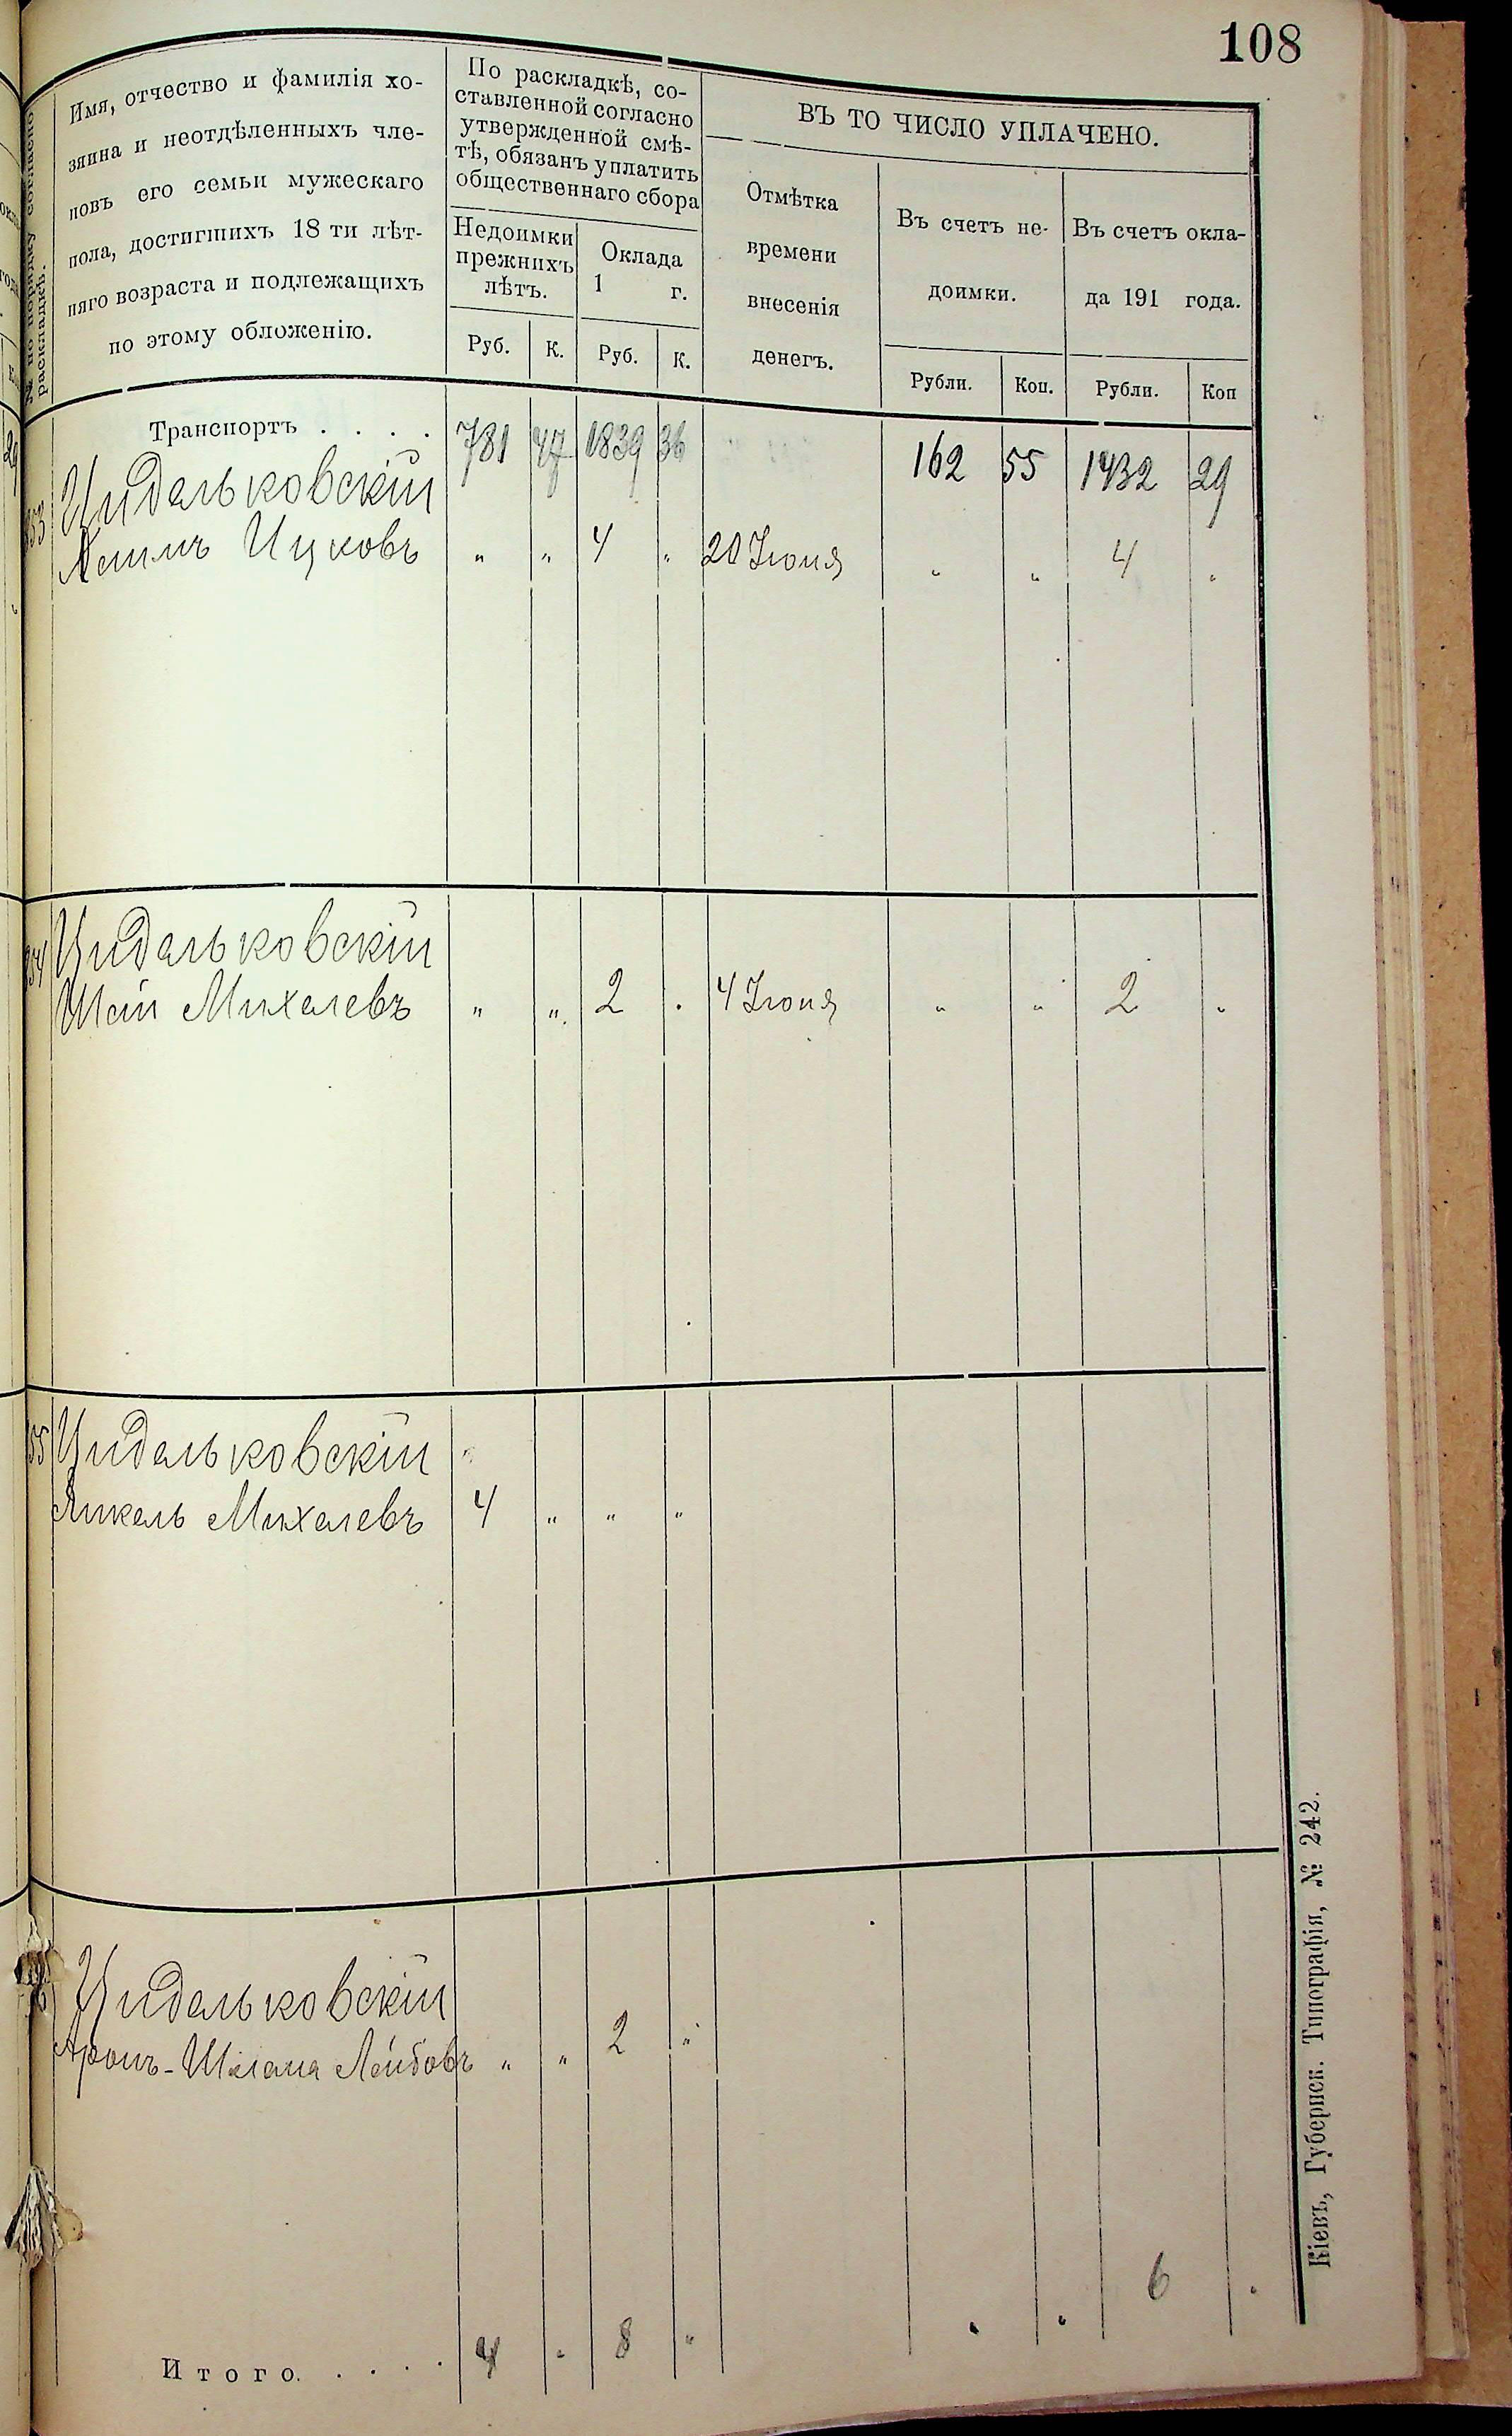 108
№ по порядку согласно раскладкѣ.
Имя, отчество и фамилія хо-
зяина и неотдѣленныхъ чле-
новъ его семьи мужескаго
пола, достигшихъ 18 ти лѣт-
няго возраста и подлежащихъ
по этому обложенію.
По раскладкѣ, со-
ставленной согласно
утвержденной смѣ-
тѣ, обязанъ уплатить
общественнаго сбора
Недоимки
прежнихъ
лѣтъ.
Оклада
1 г.
Руб. К. Руб. К.
ВЪ ТО ЧИСЛО УПЛАЧЕНО.
Отмѣтка
времени
внесенія
денегъ.
Въ счетъ не-
доимки.
Въ счетъ окла-
да 191 года.
Рубли. Коп. Рубли. Коп
Транспортъ . . . . 781 47 1839 36 162 55 1432 29
853 Цидельковскій
Хаимъ Ицковъ " " 4 " 20 Іюня " " 4 "
854 Цидельковскій
Шай Михелевъ " " 2 " 4 Іюня " " 2 "
855 Цидельковскій
Янкель Михелевъ 4 " " "
Цидельковскій
Аронъ-Шлема Лейбовъ " " 2 "
Итого. . . . . 4 " 8 " " " 6 "
Кіевъ, Губернск. Типографія, № 242.